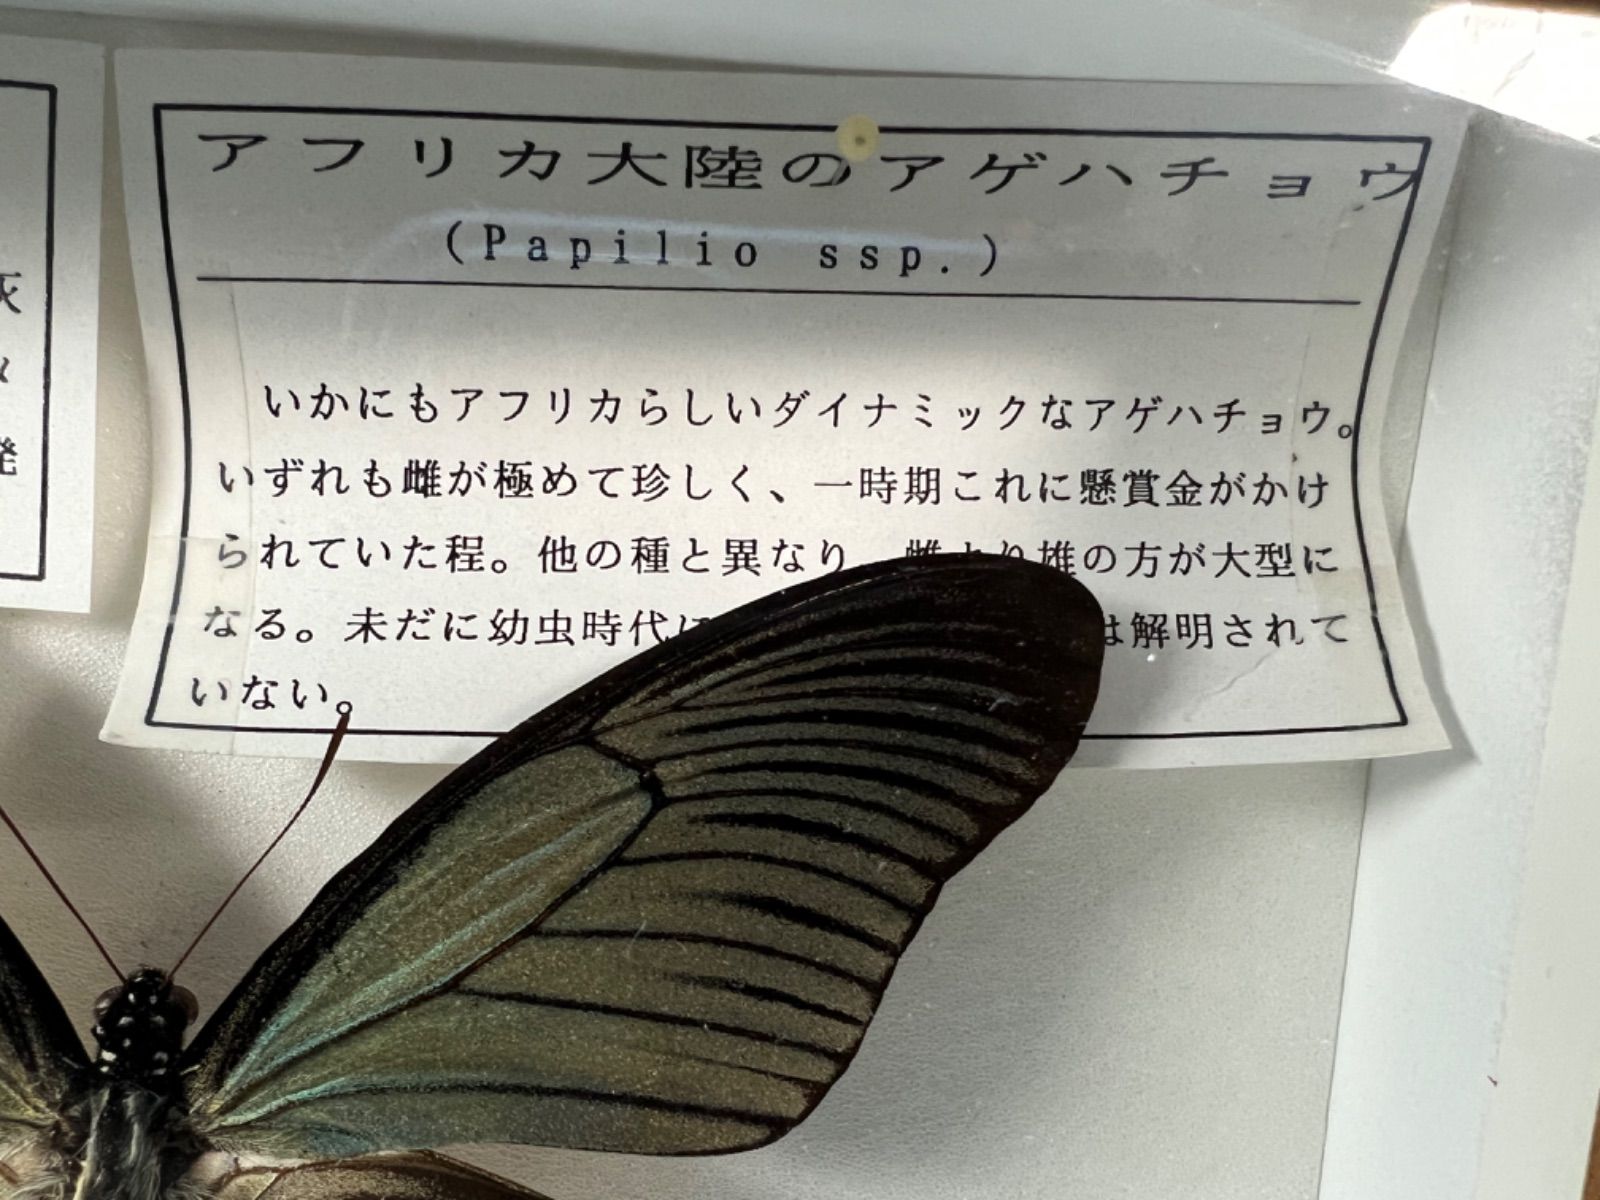 アフリカ大陸のアゲハチョウ
(Papilio ssp.)
いかにもアフリカらしいダイナミックなアゲハチョウ。
いずれも雌が極めて珍しく、一時期これに懸賞金がかけ
られていた程。他の種と異なり 雌より雄の方が大型に
なる。未だに幼虫時代 は解明されて
いない。
灰
発